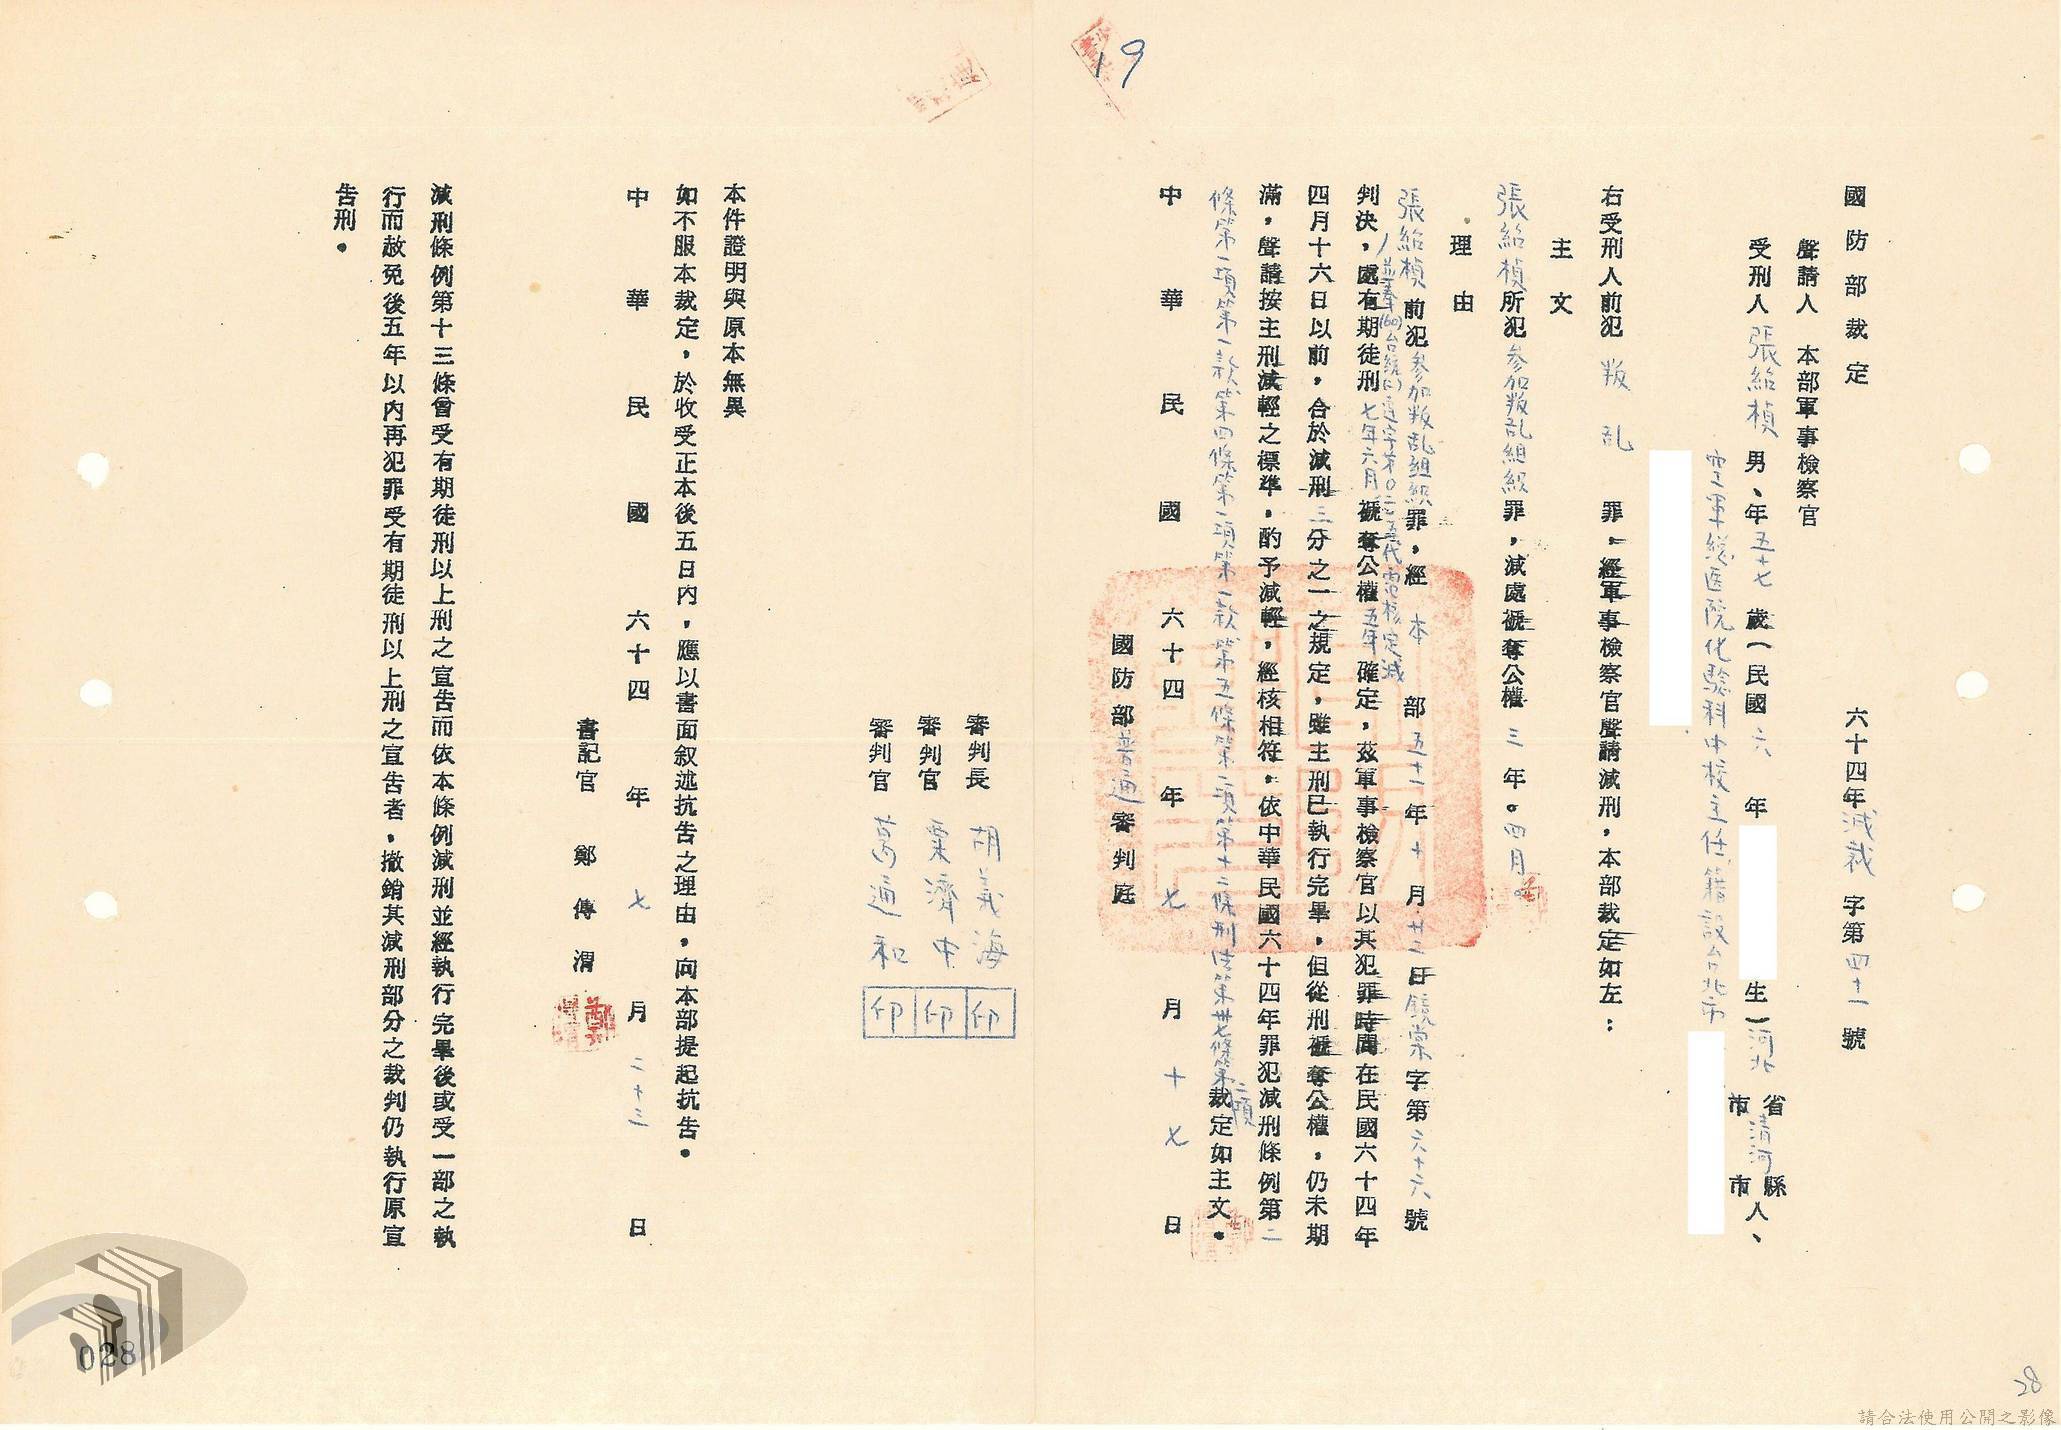 19
國防部裁定
六十四年減裁字第四十一號
聲請人 本部軍事檢察官
受刑人張紿楨男、年五十七歲(民國六年 生)河北省市清河縣市人、
空軍總医院化驗科中校主任,籍設台北市
右受刑人前犯叛乱罪,經軍事檢察官聲請減刑,本部裁定如左:
主文
張紿楨所犯参加叛乱組織罪,減處褫奪公權三年。四月。
理由
張紿楨前犯参加叛乱組織罪,經本部五十一年十月廿二日鏡棠字第六十六號
判決,處有期徒刑七年六月褫奪公權五年確定,茲軍事檢察官以其犯罪時間在民國六十四年
四月十六日以前,合於減刑三分之一之規定,雖主刑已執行完畢,但從刑褫奪公權,仍未期
滿,聲請按主刑減輕之標準,酌予減輕,經核相符。依中華民國六十四年罪犯減刑條例第二
條第一項第一款第四條第一項第一款第五條第二項第十二條刑法第卅七條第二項裁定如主文。
中華民國六十四年七月十七日
國防部普通審判庭
審判長 胡義海 印
審判官 粟濟中 印
審判官 葛通和 印
本件證明與原本無異
如不服本裁定,於收受正本後五日內,應以書面叙述抗告之理由,向本部提起抗告。
中華民國六十四年七月二十三日
書記官 鄭傳渭
減刑條例第十三條曾受有期徒刑以上刑之宣告而依本條例減刑並經執行完畢後或受一部之執
行而赦免後五年以內再犯罪受有期徒刑以上刑之宣告者,撤銷其減刑部分之裁判仍執行原宣
告刑。
028
28
請合法使用公開之影像